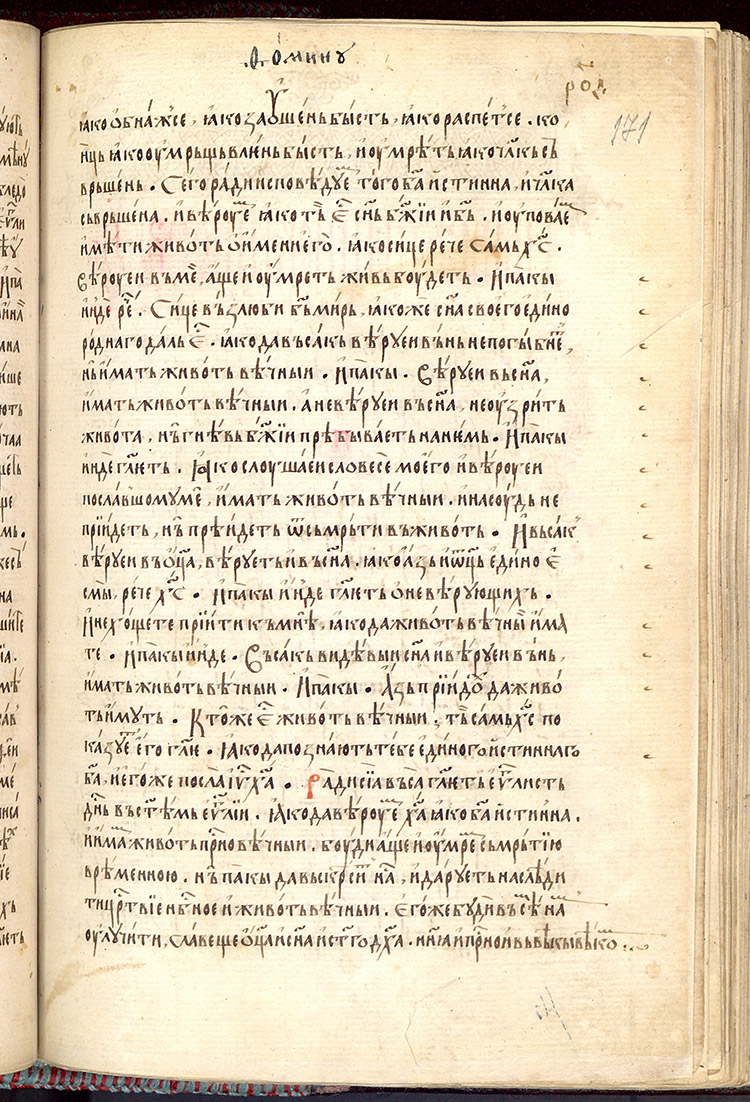 .Ѳ. ѳоминꙋ
род
171
ꙗко обнажсе, ꙗко заꙋшень бысть, ꙗко распетсе. ко
нць ꙗко оумрьщьвлень бысть, и оумрѣть ꙗко чл҃къ съ
врьшень. Сего ради исповѣдꙋе того ба҃ истинна, и чл҃ка
съврьшена. и вѣроуе ꙗко тъ е҃ сн҃ь бж҃їи и бь҃. и оуповае
имѣти животь о имени его. ꙗко сице рече самь хс҃.
Вѣроуеи въ ме, аще и оумреть живь боудеть. И пакы
инде ре҃. Сице възлюби бь҃ мирь, ꙗкоже сн҃а своего едино
роднаго даль е҃. ꙗко да въсакъ вѣруеи вънь не погыбне,
нь имать животь вѣчныи. И пакы. Вѣруеи въ сн҃а,
имать животь вѣчныи. а не вѣруеи въ сн҃а, не оузрить
живота, нь гнѣвь бж҃їи прѣбываеть на немь. И пакы
инде гл҃еть. Ꙗко слоушаеи словесе моего и вѣроуеи
пославшомуме, имать животь вѣчныи. и на соудь не
прїидеть, нь прѣидеть ѿ съмрьти въ животь. И въсак
вѣруеи въ оц҃а, вѣруеть и въ сн҃а. ꙗко азь и ѡц҃ь едино е
смы, рече хс҃. И пакы инде гл҃еть о невѣрующихь.
И не хощете прїити къ мнѣ, ꙗко да животь вѣчны имя
те. И пакы инде. Въсакъ видѣвыи сн҃а и вѣруеи вънь,
имать животь вѣчныи. И пакы. Азь прїидо да живо
ть имуть. Кто же е҃ животь вѣчныи, тъ самь хс҃ по
казуе его гл҃ѥ. Ꙗко да познають тебе единого истиннаго
ба҃, и егоже посла іу҃ ха҃. Ради сїа въса гл҃еть еѵ҃листь
дн҃ь въ стѣмь еѵ҃лїи. Ꙗко да вѣроуе ха҃ ꙗко ба҃ истинна.
и има животь присно вѣчныи. боуди аще и оумре съмрътїю
врѣменною. нь пакы да въскрⷭ҇и на, и даруеть наслѣди
ти црⷭ҇твїе нб҃ное и животь вѣчныи. Егоже буди въсѣ на
оулучити, славеще оц҃а и сн҃а и ст҃го дх҃а. нн҃ꙗ и прно и въ вѣкы вѣко